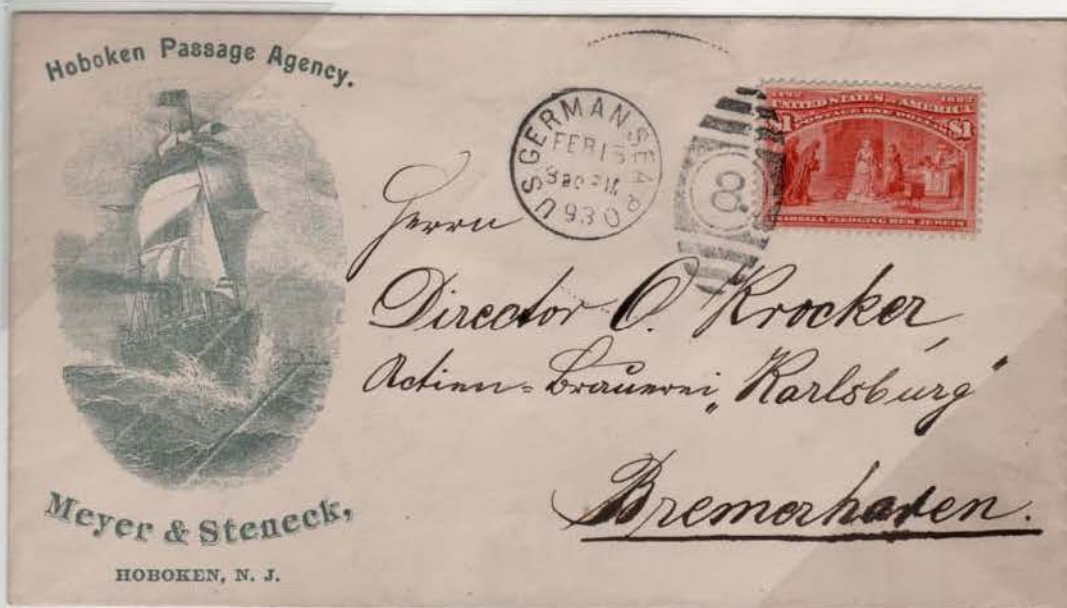 Hoboken Passage Agency.
Meyer & Steneck,
HOBOKEN, N. J.
U S GERMAN SEA P O
FEB 15
93 0
8
1492 1892
UNITED STATES OF AMERICA
POSTAGE ONE DOLLAR
$1 $1
ISABELLA PLEDGING HER JEWELS
Herrn
Director O. Krocker,
Actien=Brauerei „Karlsburg"
Bremerhaven.